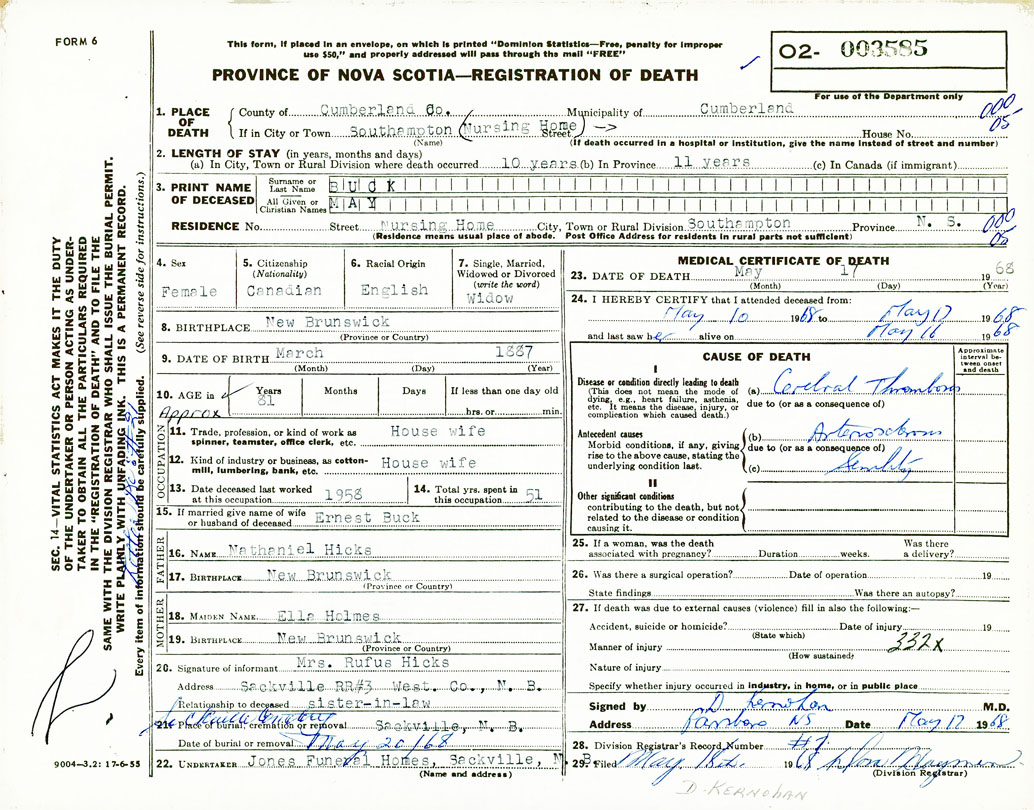 FORM 6
This form, if placed in an envelope, on which is printed "Dominion Statistics—Free, penalty for improper
use $50," and properly addressed will pass through the mail "FREE"
PROVINCE OF NOVA SCOTIA—REGISTRATION OF DEATH
02- 003585
For use of the Department only
1. PLACE OF DEATH County of Cumberland Co. Municipality of Cumberland 000
If in City or Town Southampton (Nursing Home) Street House No. 05
(Name) (If death occurred in a hospital or institution, give the name instead of street and number)
2. LENGTH OF STAY (in years, months and days)
(a) In City, Town or Rural Division where death occurred 10 years (b) In Province 11 years (c) In Canada (if immigrant)
3. PRINT NAME OF DECEASED Surname or Last Name BUCK
All Given or Christian Names MAY
RESIDENCE No. Street Nursing Home City, Town or Rural Division Southampton Province N. S. 000
(Residence means usual place of abode. Post Office Address for residents in rural parts not sufficient) 05
SEC. 14—VITAL STATISTICS ACT MAKES IT THE DUTY
OF THE UNDERTAKER OR PERSON ACTING AS UNDER-
TAKER TO OBTAIN ALL THE PARTICULARS REQUIRED
IN THE "REGISTRATION OF DEATH" AND TO FILE THE
SAME WITH THE DIVISION REGISTRAR WHO SHALL ISSUE THE BURIAL PERMIT.
WRITE PLAINLY WITH UNFADING INK. THIS IS A PERMANENT RECORD.
Every item of information should be carefully supplied. (See reverse side for instructions.)
4. Sex Female
5. Citizenship (Nationality) Canadian
6. Racial Origin English
7. Single, Married, Widowed or Divorced (write the word) Widow
8. BIRTHPLACE New Brunswick
(Province or Country)
9. DATE OF BIRTH March 1887
(Month) (Day) (Year)
10. AGE in Years 81 Months Days If less than one day old
Approx hrs. or min.
OCCUPATION
11. Trade, profession, or kind of work as spinner, teamster, office clerk, etc. House wife
12. Kind of industry or business, as cotton-mill, lumbering, bank, etc. House wife
13. Date deceased last worked at this occupation 1958
14. Total yrs. spent in this occupation 51
15. If married give name of wife or husband of deceased Ernest Buck
FATHER
16. NAME Nathaniel Hicks
17. BIRTHPLACE New Brunswick
(Province or Country)
MOTHER
18. MAIDEN NAME Ella Holmes
19. BIRTHPLACE New Brunswick
(Province or Country)
20. Signature of informant Mrs. Rufus Hicks
Address Sackville RR#3 West. Co., N. B.
Relationship to deceased sister-in-law
21. Place of burial cremation or removal Sackville, N. B.
Date of burial or removal May 20/68
22. UNDERTAKER Jones Funeral Homes, Sackville, N. B.
(Name and address)
9004—3.2: 17-6-55
MEDICAL CERTIFICATE OF DEATH
23. DATE OF DEATH May 17 1968
(Month) (Day) (Year)
24. I HEREBY CERTIFY that I attended deceased from:
May 10 1968 to May 17 1968
and last saw her alive on May 16 1968
CAUSE OF DEATH
Approximate interval between onset and death
I
Disease or condition directly leading to death (a) Cerebral Thrombosis
(This does not mean the mode of dying, e.g., heart failure, asthenia, etc. It means the disease, injury, or complication which caused death.) due to (or as a consequence of)
Antecedent causes (b) Arteriosclerosis
Morbid conditions, if any, giving rise to the above cause, stating the underlying condition last. due to (or as a consequence of)
(c) Senility
II
Other significant conditions
contributing to the death, but not related to the disease or condition causing it.
25. If a woman, was the death associated with pregnancy? Duration weeks. Was there a delivery?
26. Was there a surgical operation? Date of operation 19
State findings Was there an autopsy?
27. If death was due to external causes (violence) fill in also the following:—
Accident, suicide or homicide? Date of injury 19
(State which)
Manner of injury 332X
(How sustained)
Nature of injury
Specify whether injury occurred in industry, in home, or in public place
Signed by D. Kernohan M.D.
Address Parrsboro NS Date May 17 1968
28. Division Registrar's Record Number #7
29. Filed May 18th 1968
(Division Registrar)
D. KERNOHAN